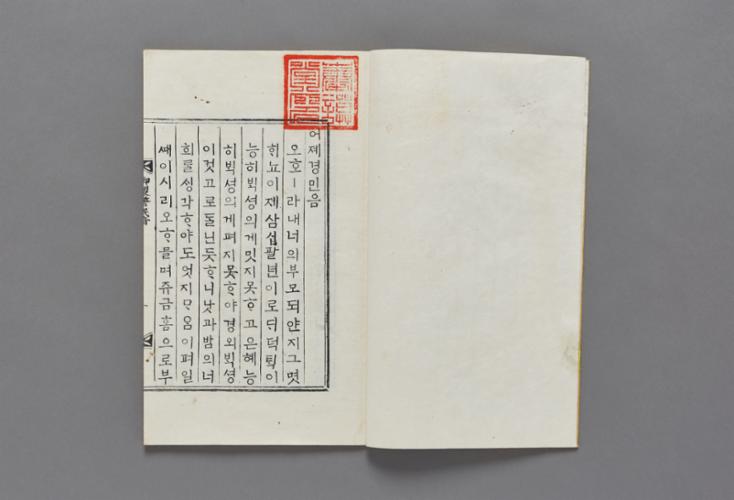 어졔경민음
오호ㅣ라내너의부모되얀지그몃
ᄒᆡ뇨이제삼섭팔년이로ᄃᆡ덕ᄐᆡᆨ이
능히ᄇᆡᆨ셩의게밋지못ᄒᆞ고은혜능
히ᄇᆡᆨ셩의게펴지못ᄒᆞ야경외ᄇᆡᆨ셩
이것고로둘닌듯ᄒᆞ니낫과밤의너
희ᄅᆞᆯᄉᆡᆼ각ᄒᆞ야도엇지ᄆᆞᄋᆞᆷ이펴일
ᄣᅢ이시리오ᄒᆞ믈며쥬금흠으로부
御製警民音